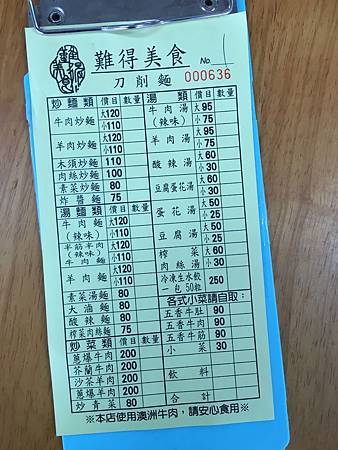 難得美食
刀削麵
No. 1
000636
炒麵類 價目 數量
牛肉炒麵 大120 小110
羊肉炒麵 大120 小110
木須炒麵 110
肉絲炒麵 100
素菜炒麵 80
炸醬麵 75
湯麵類 價目 數量
牛肉麵(辣味) 大120 小110
半筋半肉(辣味)牛肉麵 大120 小110
羊肉麵 大120 小110
素菜湯麵 80
大滷麵 80
酸辣麵 80
榨菜肉絲麵 75
炒菜類 價目 數量
蔥爆牛肉 200
芥蘭牛肉 200
沙茶羊肉 200
蔥爆羊肉 200
炒青菜 80
湯類 價目 數量
牛肉湯(辣味) 大95 小75
羊肉湯 大95 小75
酸辣湯 大60 小30
豆腐蛋花湯 大60 小30
蛋花湯 大50 小25
豆腐湯 大50 小25
榨菜肉絲湯 大60 小30
冷凍生水餃一包50粒 250
各式小菜請自取:
五香牛肚 90
五香牛肉 90
五香牛筋 90
小菜 30
飲料
合計
※本店使用澳洲牛肉,請安心食用※